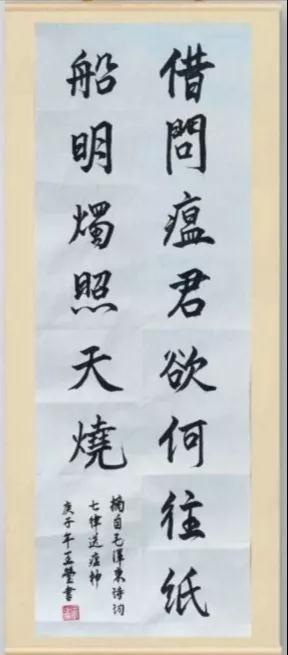 借問瘟君欲何往紙
船明燭照天燒
摘自毛澤東詩詞
七律送瘟神
庚子年王瑩書